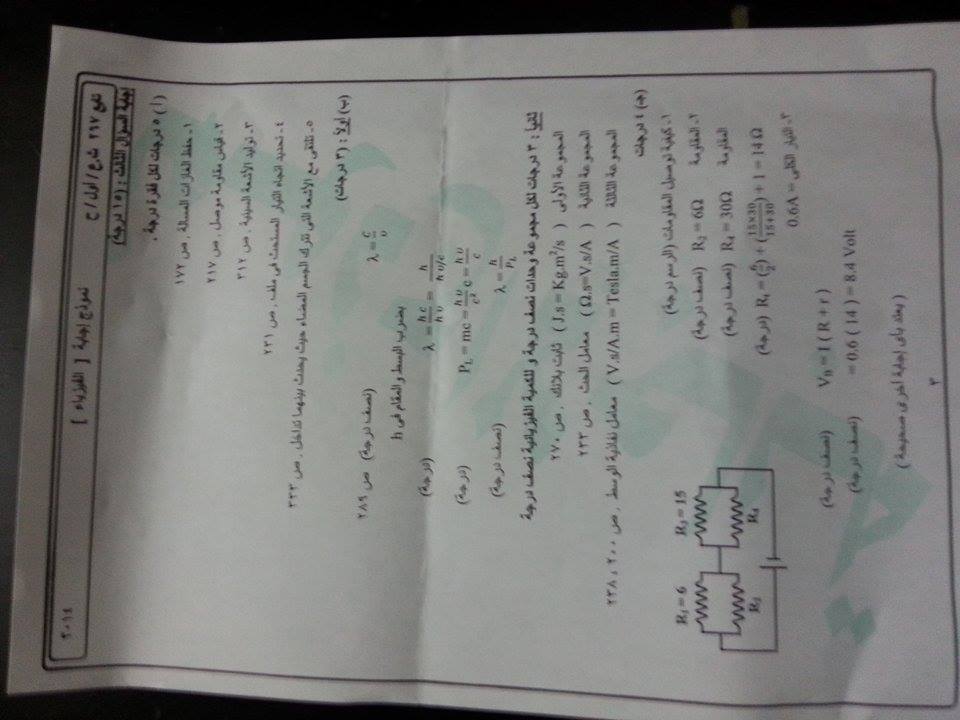 ٢٠١٤ نموذج إجابة [ الفيزياء ] تابع ٢٩٧ ث.ع / أول / ح
إجابة السؤال الثالث : (١٥ درجة)
( أ ) ٥ درجات لكل فقرة درجة .
١- حفظ الغازات المسالة . ص ١٧٢
٢- قياس مقاومة موصل . ص ٢١٧
٣- توليد الأشعة السينية . ص ٣١٢
٤- تحديد اتجاه التيار المستحث في ملف . ص ٢٣١
٥- تلتقي مع الأشعة التي تترك الجسم المضاء حيث يحدث بينهما تداخل . ص ٣٢٣
(ب) أولاً : (٣ درجات)
λ = c/υ (نصف درجة) ص ٢٨٩
بضرب البسط والمقام في h
λ = hc/hυ = h/(hυ/c) (درجة)
PL = mc = (hυ/c²) c = hυ/c (درجة)
λ = h/PL (نصف درجة)
ثانيا : ٣ درجات لكل مجموعة وحدات نصف درجة و للكمية الفيزيائية نصف درجة
المجموعة الأولى ( J.s = Kg.m²/s ) ثابت بلانك . ص ٢٧٠
المجموعة الثانية ( Ω.s=V.s/A ) معامل الحث . ص ٢٢٣
المجموعة الثالثة ( V.s/A.m = Tesla.m/A ) معامل نفاذية الوسط . ص ٢٠٠ ، ٢٣٨
(ج) ٤ درجات
١- كيفية توصيل المقاومات (الرسم درجة)
٢- المقاومة R2 = 6Ω (نصف درجة)
المقاومة R4 = 30Ω (نصف درجة)
(درجة) Rt = (6/2) + (15×30/15+30) + 1 = 14 Ω
٣- التيار الكلي = 0.6A
VB = I ( R + r ) (نصف درجة)
= 0.6 ( 14 ) = 8.4 Volt (نصف درجة)
R1 = 6 R3 = 15
R2 R4
( يعتد بأي إجابة أخرى صحيحة )
٣